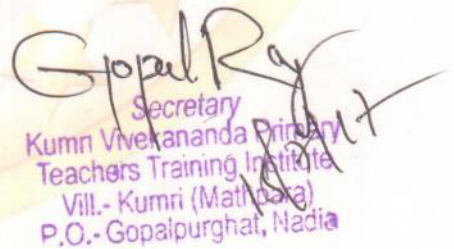 Gopal Ray
Secretary
Kumri Vivekananda Primary
Teachers Training Institute
Vill.- Kumri (Mathpara)
P.O.- Gopalpurghat, Nadia